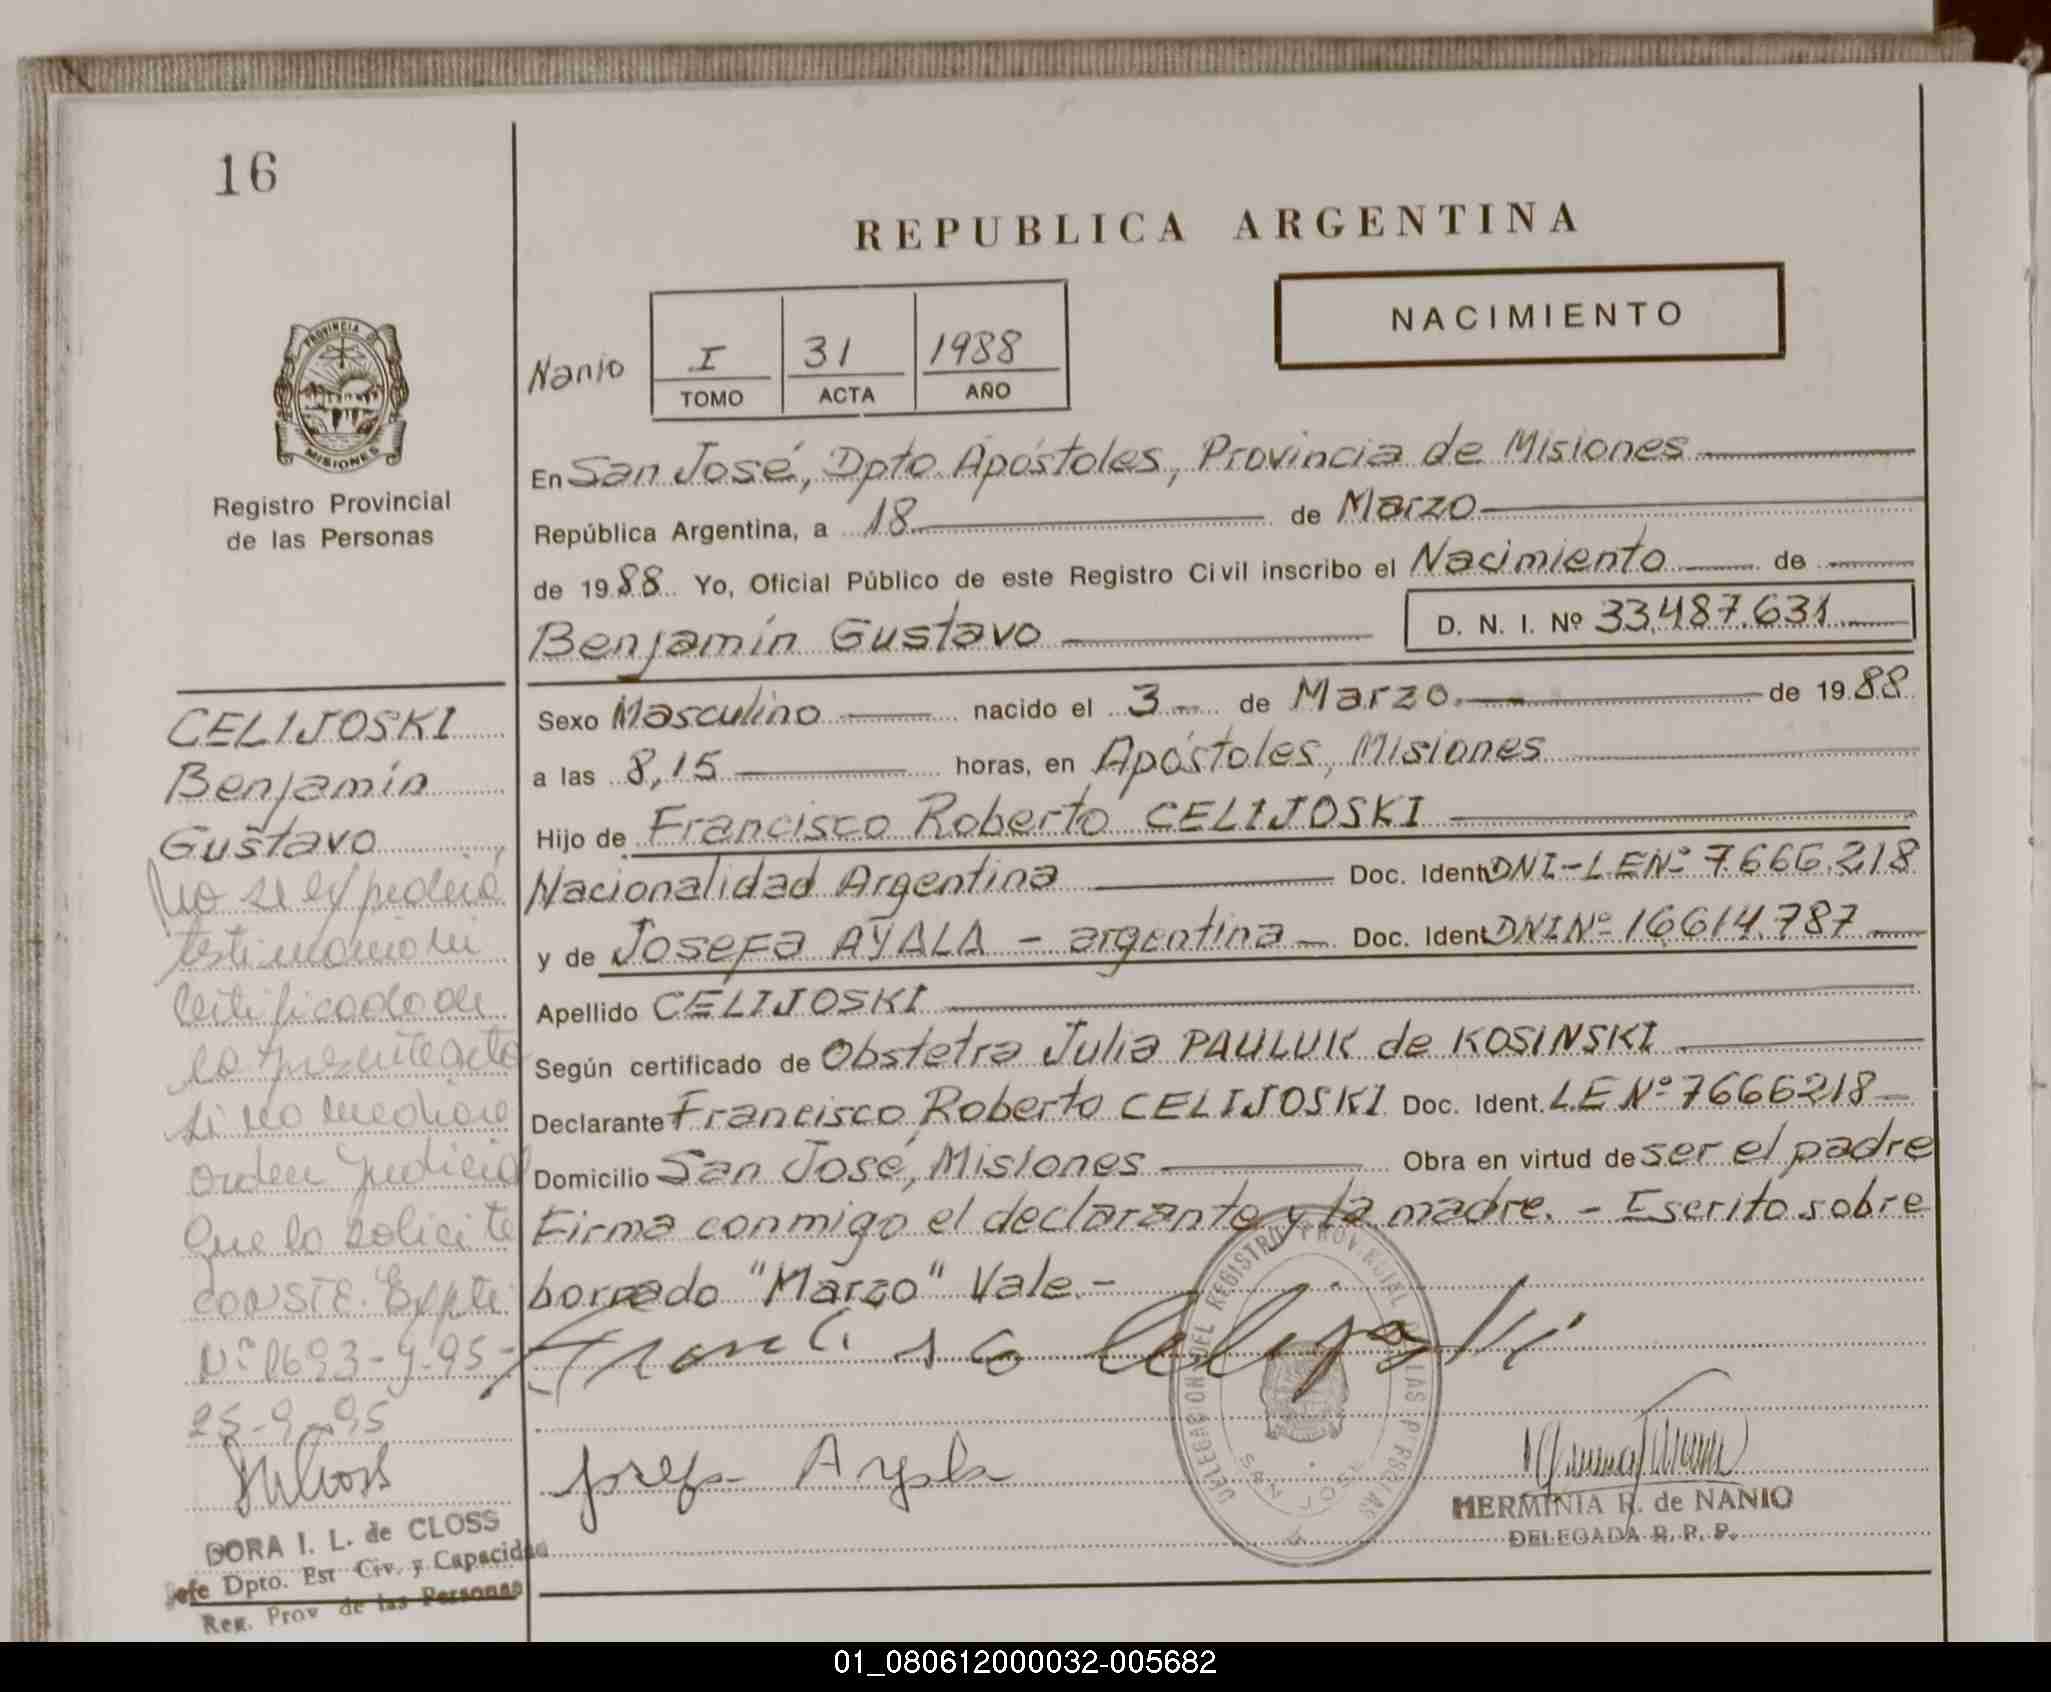 16
REPUBLICA ARGENTINA
NACIMIENTO
Nanio
I 31 1988
TOMO ACTA AÑO
PROVINCIA
MISIONES
Registro Provincial
de las Personas
En San José, Dpto. Apóstoles, Provincia de Misiones
República Argentina, a 18 de Marzo
de 1988 Yo, Oficial Público de este Registro Civil inscribo el Nacimiento de
Benjamín Gustavo D. N. I. Nº 33.487.631
CELIJOSKI
Benjamín
Gustavo
No se expedirá
testimonio ni
certificado de
la presente acta
si no media
orden judicial
que lo solicite
CONSTE. Expte
Nº 1693-9-95-
25-9-95
DORA I. L. de CLOSS
Jefe Dpto. Est Civ. y Capacidad
Reg. Prov de las Personas
Sexo Masculino nacido el 3 de Marzo. de 1988
a las 8,15 horas, en Apóstoles, Misiones
Hijo de Francisco Roberto CELIJOSKI
Nacionalidad Argentina Doc. Ident DNI-LENº 7.666.218
y de Josefa AYALA - argentina Doc. Ident DNINº 16.614.787
Apellido CELIJOSKI
Según certificado de Obstetra Julia PAULUK de KOSINSKI
Declarante Francisco Roberto CELIJOSKI Doc. Ident. LE Nº 7666218
Domicilio San José, Misiones Obra en virtud de ser el padre
Firma conmigo el declarante y la madre. - Escrito sobre
borrado "Marzo" Vale.-
Francisco Celijoski
Josefa Ayala
DELEGACION DEL REGISTRO PROVINCIAL DE LAS PERSONAS
SAN JOSE
HERMINIA R. de NANIO
DELEGADA R. P. P.
01_080612000032-005682